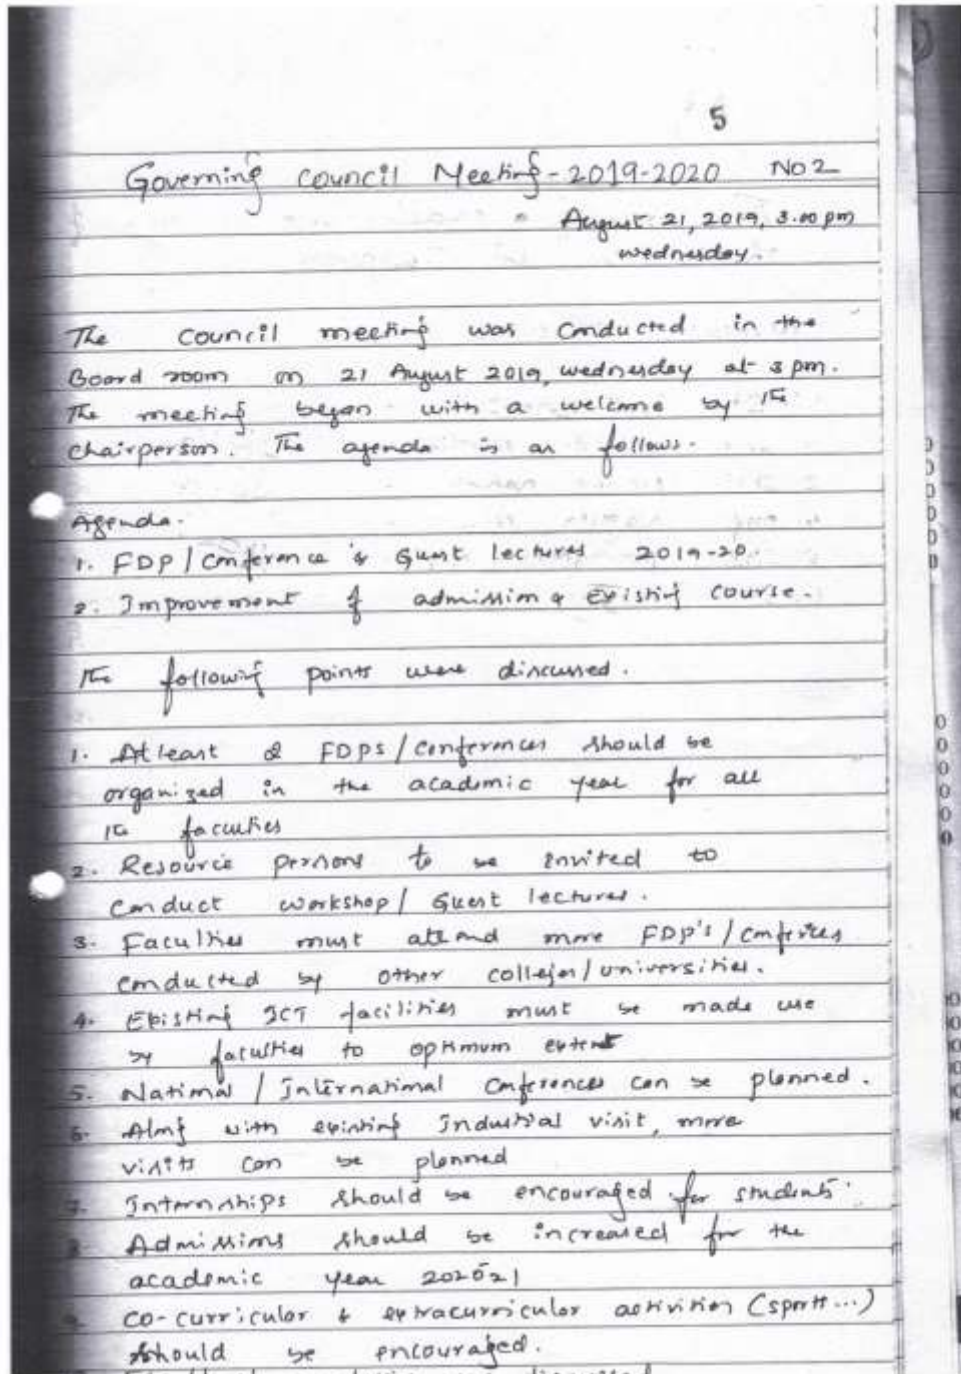 5
Governing Council Meeting - 2019-2020 No 2
August 21, 2019, 3.00 pm
wednesday.
The council meeting was conducted in the
Board room on 21 August 2019, wednesday at 3 pm.
The meeting began with a welcome by the
chairperson. The agenda is as follows.
Agenda.
1. FDP / Conference & Guest lectures 2019-20.
2. Improvement of admission & Existing course.
The following points were discussed.
1. Atleast 2 FDPs / Conferences should be
organized in the academic year for all
the faculties
2. Resource persons to be invited to
conduct workshop / Guest lectures.
3. Faculties must attend more FDP's /
conducted by other colleges / universities.
4. Existing ICT facilities must be made use
by faculties to optimum extent
5. National / International Conferences can be planned.
6. Along with existing Industrial visit, more
visits can be planned
7. Internships should be encouraged for students.
8. Admissions should be increased for the
academic year 2020-21
9. Co-curricular & extracurricular activities (sports...)
should be encouraged.